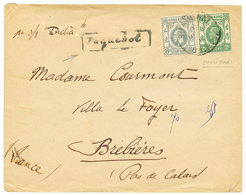 per s/s "India"
Paquebot
Madame Courmont
Villa Le Foyer
Brebières
(Pas de Calais)
(France)